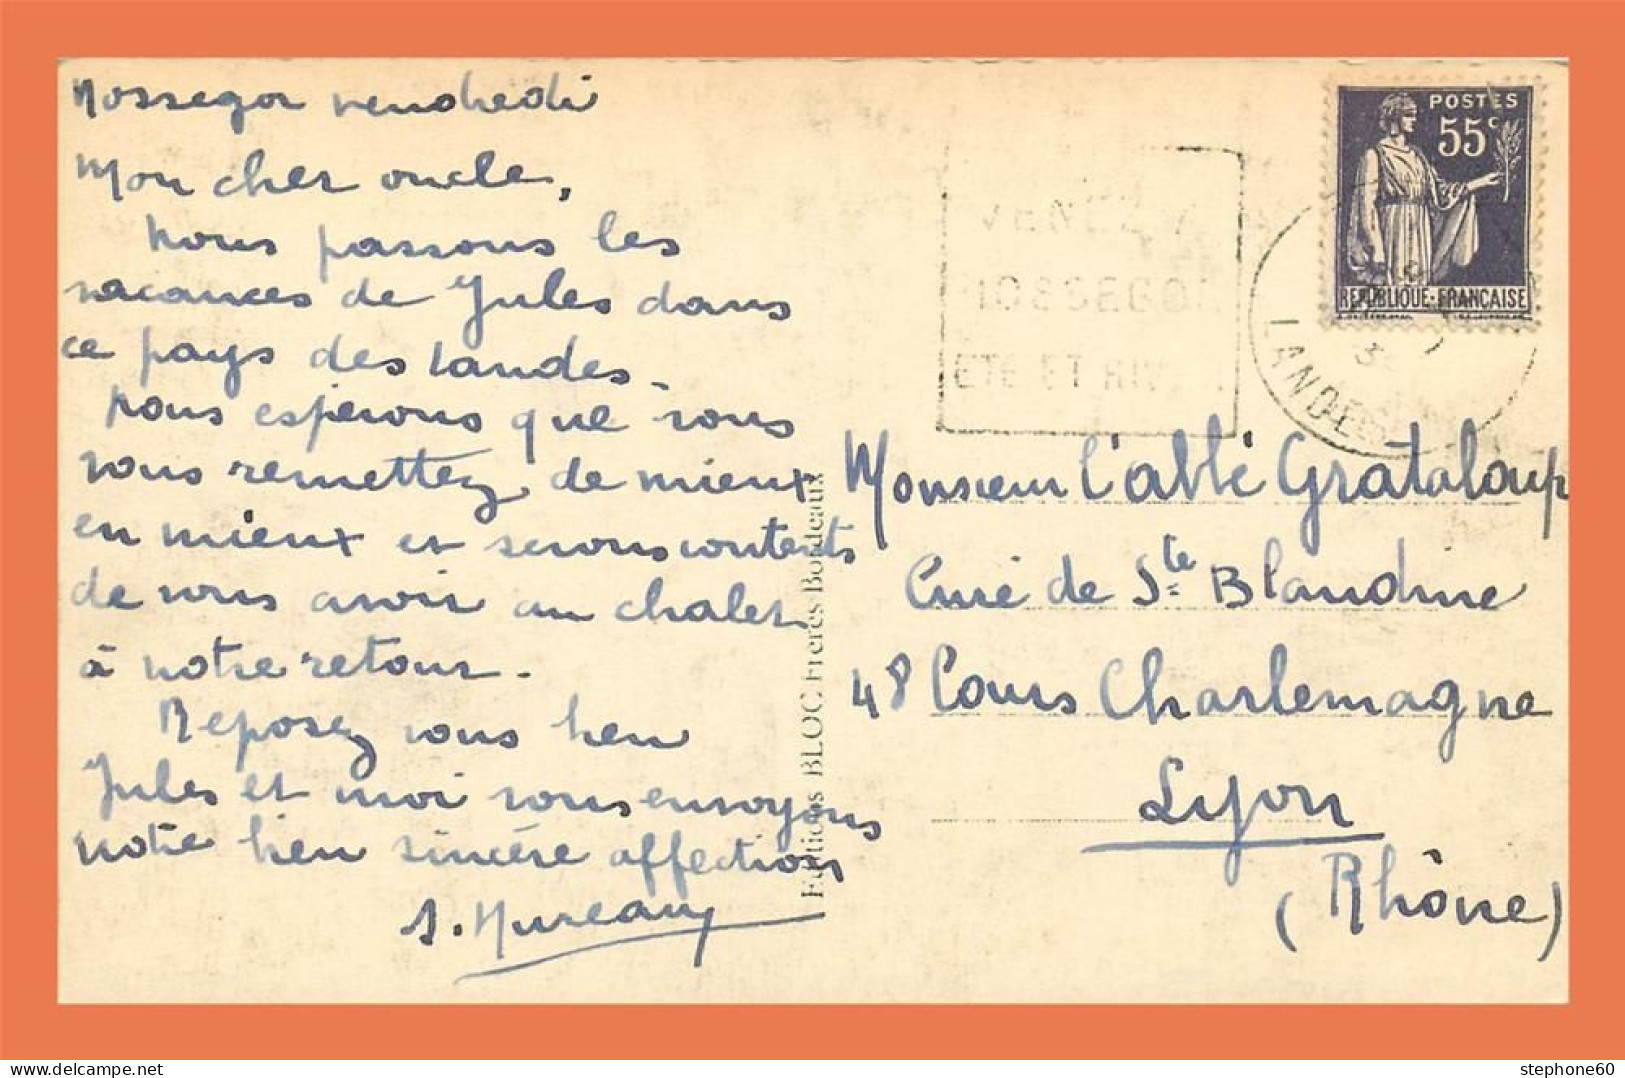 Hossegor vendredi
Mon cher oncle,
Nous passons les
vacances de Jules dans
ce pays des Landes.
Nous espérons que vous
vous remettez de mieux
en mieux et serons contents
de vous avoir au chalet
à notre retour.
Reposez vous bien
Jules et moi vous envoyons
notre bien sincère affection
Editions BLOC Frères Bordeaux
VENEZ A
HOSSEGOR
ETE ET
LANDES
POSTES
55c
REPUBLIQUE FRANCAISE
Monsieur l'abbé Grataloup
Curé de Ste Blandine
48 Cours Charlemagne
Lyon
(Rhône)
stephone60